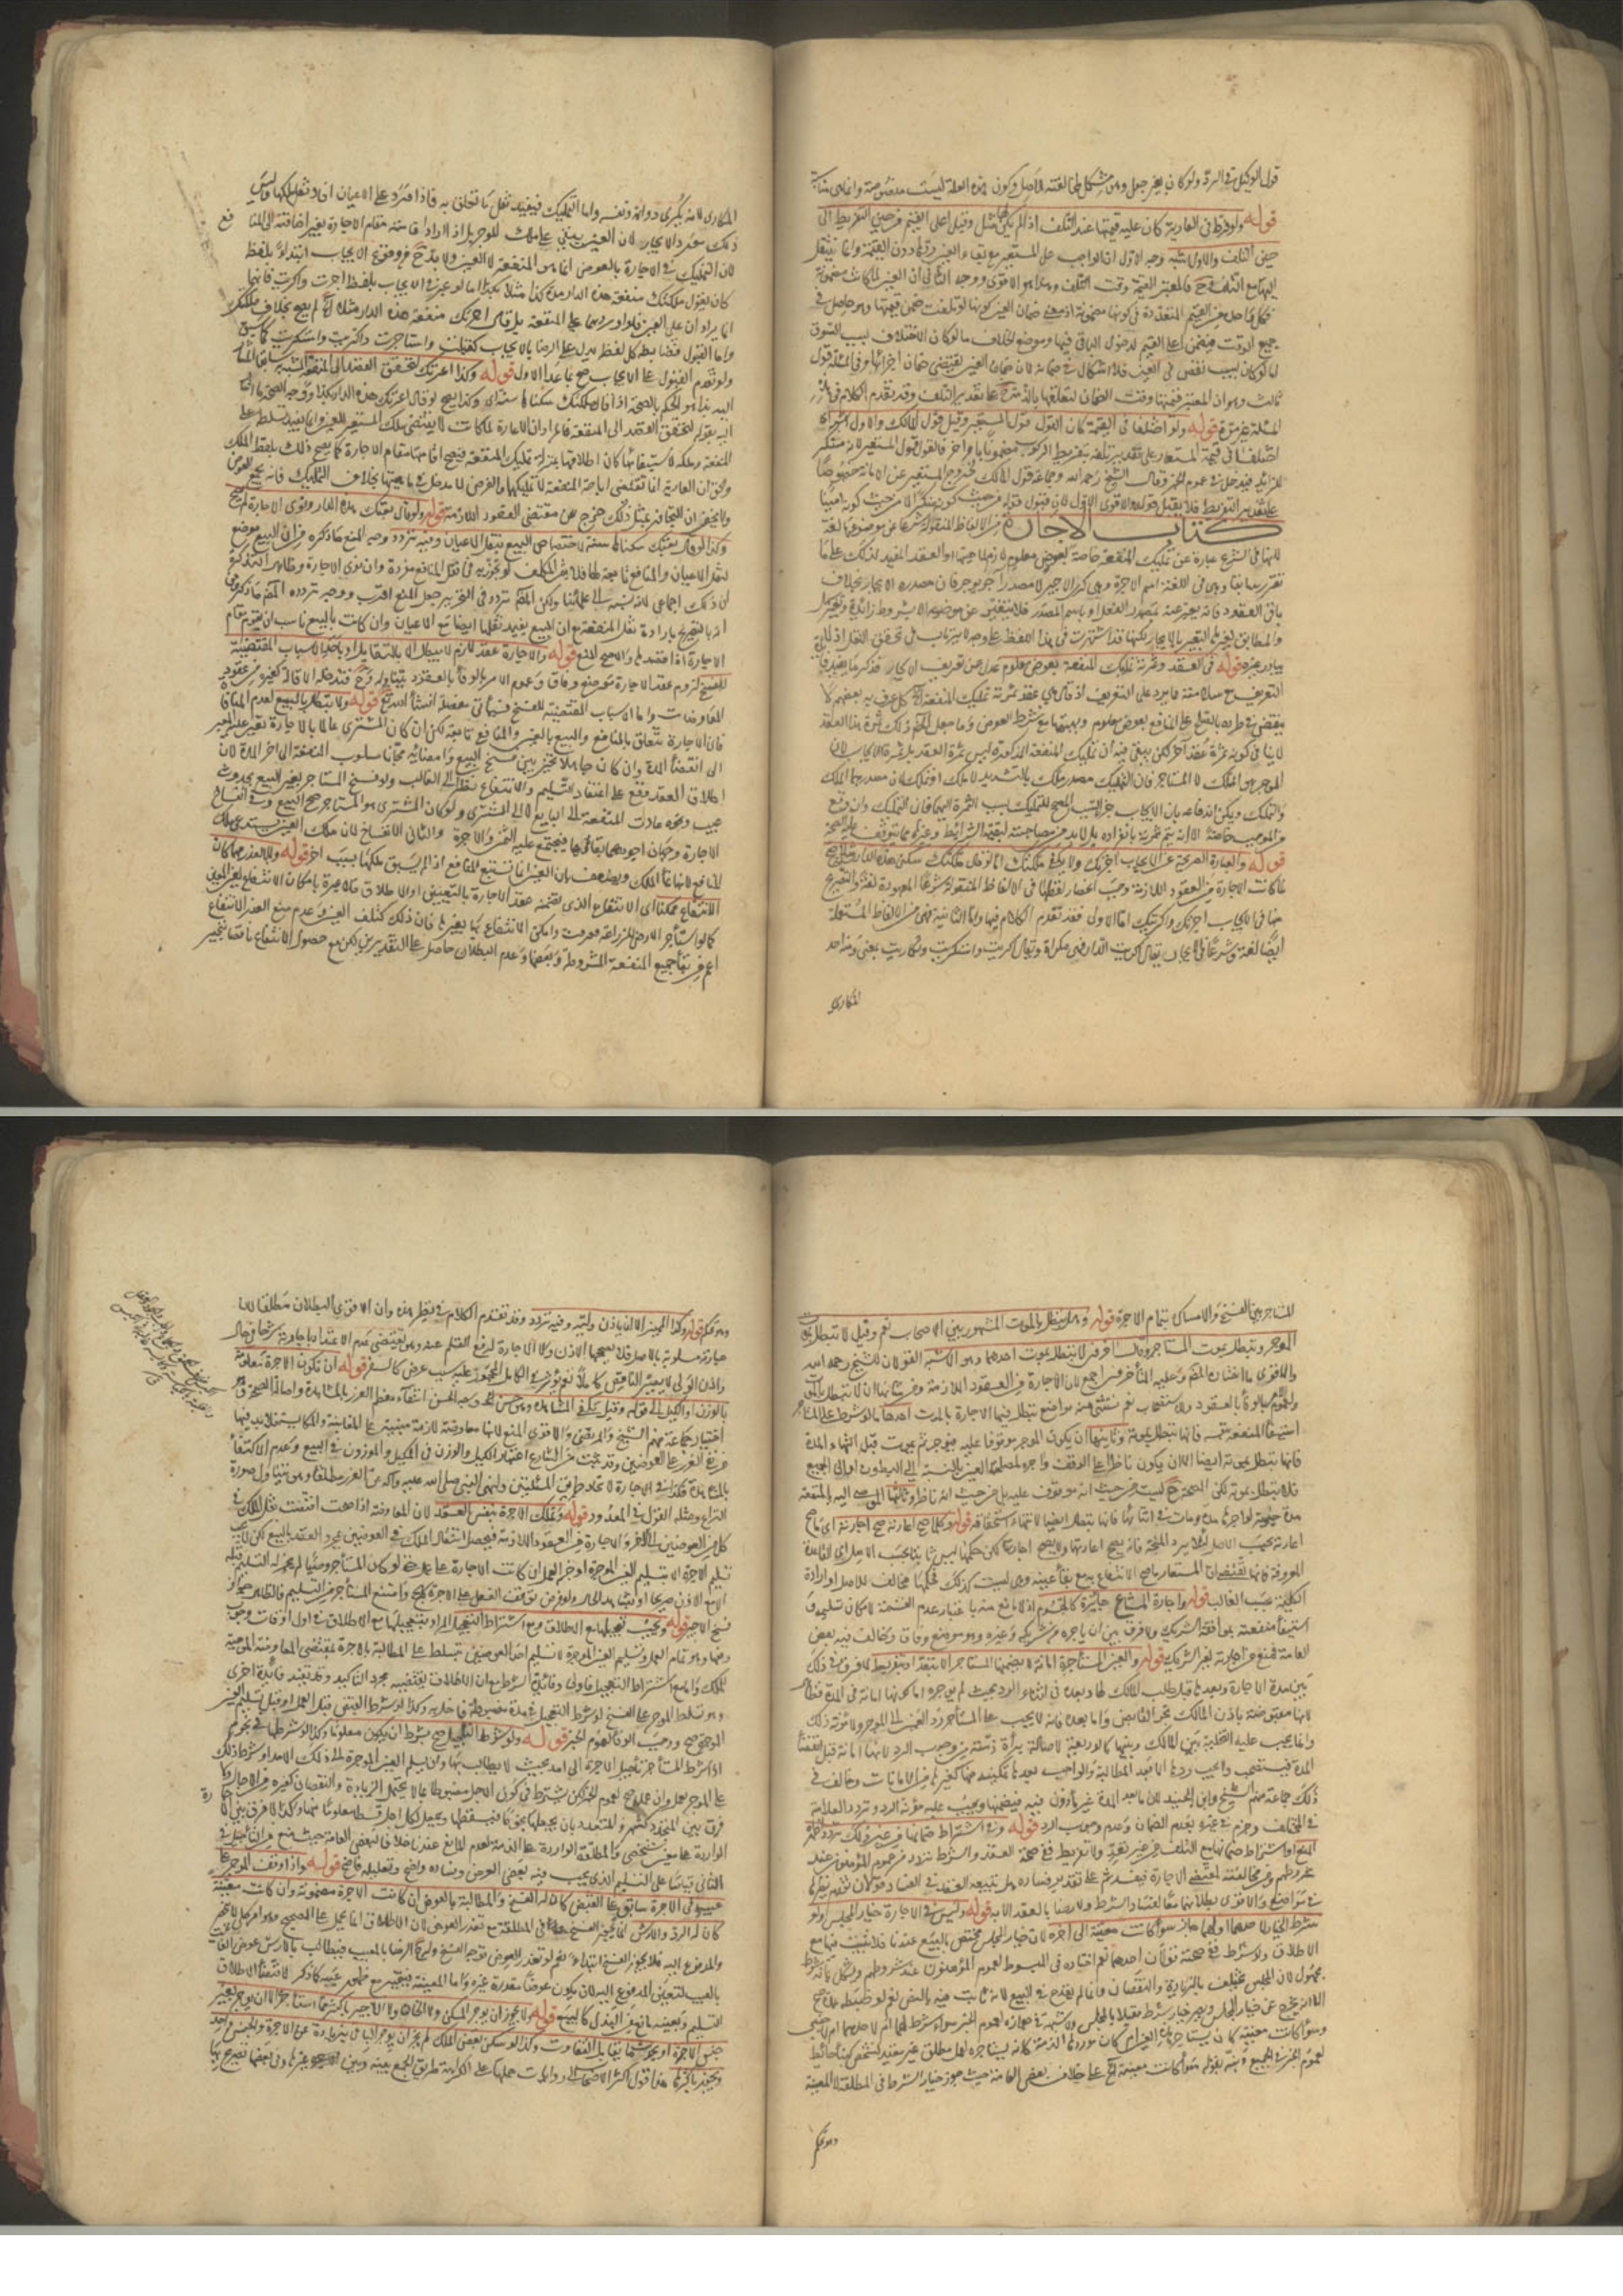 قول الوكيل في الرد ولو كان بغير جعل وهو مشكل لمخالفته الاصل وكون هذه العلة ليست منصوصة وانما هي مناسبة
قوله ولو فرط في العارية كان عليه قيمتها عند التلف اذا لم يكن لها مثل وقيل اعلى القيم من حين التفريط الى
حين التلف والاول اشبه وجه الاول ان الواجب على المستعير مع بقاء العين ردها دون القيمة وانما ينتقل
اليها مع التلف فح فالمعتبر القيمة وقت التلف وهذا هو الاقوى ووجه الثاني ان العين لما كانت مضمونة
فكل واحدة من القيم المتعددة في كونها مضمونة اذ معنى ضمان العين كونها لو تلفت ضمن قيمتها وهو حاصل في
جميع الوقت فيضمن اعلى القيم لدخول الباقي فيها وموضع الخلاف ما لو كان الاختلاف بسبب السوق
اما لو كان بسبب نقص في العين فلا اشكال في ضمانه لان ضمان العين يقتضي ضمان اجزائها وفي المسئلة قول
ثالث وهو ان المعتبر قيمتها وقت الضمان لتعلقها بالذمة ح على تقدير التلف وقد تقدم الكلام في هذه
المسئلة غير مرة قوله ولو اختلفا في القيمة كان القول قول المستعير وقيل قول المالك والاول اشبه اي
اختلفا في قيمة المستعار على تقدير تلفه بتفريط او كونه مضمونا باجر فالقول قول المستعير لانه منكر
للزائد فيدخل في عموم الخبر وقال الشيخ رحمه الله وجماعة قول المالك لخروج المستعير عن الامانة خصوصا
على تقدير التفريط فلا يقبل قوله والاقوى الاول لان قبول قوله من حيث كونه منكرا لا من حيث كونه امينا
كتاب الاجارة هي من الالفاظ المنقولة شرعا عن موضوعها لغة
لانها في الشرع عبارة عن تمليك المنفعة خاصة بعوض معلوم لازم لماهيتها او العقد المفيد لذلك على ما
تقرر سابقا وهي في اللغة اسم الاجرة وهي كرى الاجير لا مصدر آجر يوجر فان مصدره الايجار بخلاف
باقي العقود فانه يعبر عنه بمصدر الفعل او باسم المصدر فلا يتغير عن موضوعه الا بشروط زائدة وتغيير سهل
والمطابق لغيرها التعبير بالايجار لكنها قد اشتهرت في هذا اللفظ على وجه لا يرتاب في تحقق النقل اذ لا
يتبادر غيره قوله في العقد وثمرته تمليك المنفعة بعوض معلوم عدل عن تعريف الاجارة بذكر ما يفيد فائدة
التعريف مع سلامته مما يرد على التعريف اذ قال هي عقد ثمرته تمليك المنفعة الخ كما عرف به بعضهم لا
ينتقض في طرده بالصلح على المنافع بعوض معلوم وبهبتها مع شرط العوض وما جعل المص ذلك ثمرة هذا العقد
لا ينافي كونه ثمرة عقد آخر لكن يبقى فيه ان تمليك المنفعة المذكورة ليس ثمرة العقد بل ثمرة الايجاب لان
الموجر هو المملك لا المستاجر فان التمليك مصدر ملك بالتشديد لا ملك او تملك لان مصدرهما الملك
والتملك ويمكن اندفاعه بان الايجاب جزء السبب المصحح للتمليك بسبب الثمرة اليهما فان التمليك وان وقع
من الموجب خاصة الا انه لم يتم ثمرته بانفراده بل لا بد من مصاحبته لبقية الشرائط وغيرها مما يتوقف عليه الصحة
قوله والعبارة الصريحة عن الايجاب آجرتك ولا يكفي ملكتك اما لو قال ملكتك سكنى هذه الدار سنة مثلا صح
لما كانت الاجارة من العقود اللازمة وجب انحصار لفظها في الالفاظ المنقولة شرعا المعهودة لغة والصريح
منها في الايجاب آجرتك واكريتك اما الاولى فقد تقدم الكلام فيها واما الثانية فهي من الالفاظ المستعملة
ايضا لغة وشرعا في الايجاب يقال اكريت الدار فهي مكراة ويقال اكتريت واستكريت وتكاريت بمعنى ومنه اخذ
المكاري
المكاري لانه يكري دوابه ونفسه واما التمليك فيفيد نقل ما تعلق به فاذا اورد على الاعيان افاد نقل ملكها وليس
ذلك مورد الايجار لان العين تبقى على ملك الموجر بل اذا اراد اقامته مقام الاجارة تعين اضافته الى المنافع
لان التمليك في الاجارة بالعوض انما هو للمنفعة لا العين ولا يقدح ح في وقوع الايجاب ابتداء بلفظ
كان يقول ملكتك منفعة هذه الدار مدة كذا مثلا بكذا اما لو عبر في الايجاب بلفظ آجرت واكريت فانهما
انما يردان على العين فلو اوردهما على المنفعة بان قال آجرتك منفعة هذه الدار مثلا الخ لم يصح بخلاف ملكتك
واما القبول فضابطه كل لفظ يدل على الرضا بالايجاب كقبلت واستاجرت واكتريت واستكريت كما سبق
ولو تقدم القبول على الايجاب صح ما عدا الاول قوله وكذا اعرتك لتحقق القصد الى المنفعة المشبه به سابقا المشار
اليه بهذا هو الحكم بالصحة اذا قال ملكتك سكناها سنة اي وكذا يصح لو قال اعرتك هذه الدار بكذا ووجه الصحة ما اشار
اليه بقوله لتحقق القصد الى المنفعة فالمراد ان الاعارة لما كانت لا تقتضي ملك المستعير للعين وانما تفيد تسلطه على
المنفعة وملكه لاستيفائها كان اطلاقها بمنزلة تمليك المنفعة فيصح اقامتها مقام الاجارة كما يصح ذلك بلفظ الملك
والحق ان العارية انما تقتضي اباحة المنفعة لا تمليكها والعوض لا مدخل له في ماهيتها بخلاف التمليك فانه يجامع العوض
ولا يخفى ان التجوز بمثل ذلك خروج عن مقتضى العقود اللازمة قوله ولو قال بعتك هذه الدار ونوى الاجارة لم تصح
وكذا لو قال بعتك سكناها سنة لاختصاص البيع بنقل الاعيان وفيه تردد وجه المنع ما ذكره من ان البيع موضوع
لنقل الاعيان والمنافع تابعة لها فلا يثمر الملك لو تجوز به في نقل المنافع مفردة وان نوى الاجارة وظاهر التذكرة
ان ذلك اجماعي لانه نسبه الى علمائنا ولكن المص تردد في التحرير جعل المنع اقرب ووجه تردده المص ما ذكر ومن
انه بالتصريح بارادة نقل المنفعة مع ان البيع يفيد نقلها ايضا مع الاعيان وان كانت بالتبع ناسب ان يقوم مقام
الاجارة اذا قصدها والاصح المنع قوله والاجارة عقد لازم لا يبطل الا بالتقايل او باحد الاسباب المقتضية
للفسخ لزوم عقد الاجارة موضع وفاق وعموم الامر بالوفاء بالعقود يتناوله وح فتدخله الاقالة كغيره من عقود
المعاوضات واما الاسباب المقتضية للفسخ فسيأتي مفصلة انشاء الله تع قوله ولا تبطل بالبيع لعدم المنافاة
فان الاجارة تتعلق بالمنافع والبيع بالعين والمنافع تابعة لكن ان كان المشتري عالما بالاجارة تعين عليه الصبر
الى انقضاء المدة وان كان جاهلا تخير بين فسخ البيع وامضائه مجانا مسلوب المنفعة الى آخر المدة لان
اطلاق العقد وقع على اعتقاد التسليم والانتفاع نظرا الى الغالب ولو فسخ المستاجر بعد البيع بحدوث
عيب ونحوه عادت المنفعة الى البايع لا الى المشتري ولو كان المشتري هو المستاجر صح البيع وفي انفساخ
الاجارة وجهان اجودهما بقاؤها فيجتمع عليه الثمن والاجرة والثاني الانفساخ لان ملك العين يستدعي ملك
المنافع لانها نماء الملك ويضعف بان العين انما تستتبع المنافع اذا لم يسبق ملكها بسبب آخر قوله ولا للعذر مهما كان
الانتفاع ممكنا اي الانتفاع الذي تضمنه عقد الاجارة بالتعيين او الاطلاق فلا عبرة بامكان الانتفاع بغير المعين
كما لو استأجر الارض للزراعة فغرقت وامكن الانتفاع بها بغيرها فان ذلك كتلف العين وعدم منع العذر الانتفاع
اعم من بقاء جميع المنفعة المشروطة وبعضها وعدم البطلان حاصل على التقديرين لكن مع حصول الانتفاع ناقصا يتخير
المستاجر بين الفسخ والامساك بتمام الاجرة قوله وهل تبطل بالموت المشهور بين الاصحاب نعم وقيل لا تبطل بموت
الموجر وتبطل بموت المستاجر وقال آخرون لا تبطل بموت احدهما وهو الاشبه القولان للشيخ رحمه الله
والاقوى ما اختاره المص وعليه المتأخرون اجمع لان الاجارة من العقود اللازمة ومن شانها ان لا تبطل بالموت
ولعموم الامر بالوفاء بالعقود والاستصحاب نعم يستثنى منه مواضع تبطل فيها الاجارة بالموت احدها ما لو شرط على المستاجر
استيفاء المنفعة بنفسه فانها تبطل بموته وثانيها ان يكون الموجر موقوفا عليه فيوجر ثم يموت قبل انتهاء المدة
فانها تبطل بموته ايضا الا ان يكون ناظرا على الوقف وآجره لمصلحة العين بالنسبة الى البطون او الى الجميع
فلا تبطل بموته لكن الصحة ح ليست من حيث انه موقوف عليه بل من حيث انه ناظر وثالثها الموصى اليه بالمنفعة
مدة حيوته لو آجرها مدة ومات في اثنائها فانها تبطل ايضا لانتهاء استحقاقه قوله وكلما صح اعارته صح اجارته اي ما صح
اعارته بحسب الاصل لئلا يرد المنحة فانه يصح اعارتها ولا يصح اجارتها لكن حكمها ليس ثابتا بحسب الاصل اي القاعدة
المعروفة فانها تقتضي ان المستعار ما صح الانتفاع به مع بقاء عينه وهي ليست كذلك فحكمها مخالف للاصل او اراد
الكلية بحسب الغالب قوله واجارة المشاع جائزة كالمقسوم اذ لا مانع منه باعتبار عدم القسمة لامكان تسليمه و
استيفاء منفعته بموافقة الشريك ولا فرق بين ان ياجره من شريكه وغيره وهو موضع وفاق وخالف فيه بعض
العامة فمنع من اجارته لغير الشريك قوله والعين المستأجرة امانة لا يضمنها المستاجر الا بتعد او تفريط لا فرق في ذلك
بين مدة الاجارة وبعدها قبل طلب المالك لها وبعده في اثناء الرد بحيث لم يؤخره اما كونها امانة في المدة فظاهر
لانها مقبوضة باذن المالك بحق القابض واما بعدها فانه لا يجب على المستأجر رد العين الى الموجر ولا مؤنة ذلك
وانما يجب عليه التخلية بين المالك وبينها كالوديعة لاصالة براءة ذمته من وجوب الرد لانها امانة قبل انقضاء
المدة فيستصحب ولا يجب ردها الا بعد المطالبة والواجب بعدها تمكينه منها كغيرها من الامانات وخالف في
ذلك جماعة منهم الشيخ وابن الجنيد لان ما بعد المدة غير مأذون فيه فيضمنها ويجب عليه مؤنة الرد وتردد العلامة
في المختلف وجزم في غيره بعدم الضمان وعدم وجوب الرد قوله وفي اشتراط ضمانها من غير ذلك تردد اظهره
المنع اي اشتراط ضمانها مع التلف من غير تعد ولا تفريط ففي صحة العقد والشرط تردد من عموم المؤمنون عند
شروطهم ومن مخالفته لمقتضى الاجارة فيفسد ثم على تقدير فساده هل يتبعه العقد في الفساد قولان تقدم نظيرهما
في مواضع والاقوى بطلانهما معا لفساد الشرط ولا رضا بالعقد الا به قوله وليس في الاجارة خيار المجلس ولو
شرط الخيار لاحدهما او لهما جاز سواء كانت معينة الى آخره لان خيار المجلس مختص بالبيع عندنا فلا يثبت فيها مع
الاطلاق ولو شرط ففي صحته قولان احدهما نعم اختاره في المبسوط لعموم المؤمنون عند شروطهم ويشكل بانه شرط
مجهول لان المجلس يختلف بالزيادة والنقصان وانما لم يقدح في البيع لانه ثابت فيه بالنص نعم لو ضبطه بمدة صح
الا انه يخرج عن خيار المجلس ويصير خيار شرط مقيدا بالمجلس ولا شبهة في جوازه لعموم الخبر سواء شرط لهما ام لاحدهما ام لاجنبي
وسواء كانت معينة كان يستاجر هذه العين ام كان موردها الذمة كان يستاجره لعمل مطلق غير مقيد بشخص كبناء حائط
لعموم الخبر في الجميع ونبه بقوله سواء كانت معينة الخ على خلاف بعض العامة حيث جوز خيار الشرط في المطلقة لا المعينة
وهو تحكم
وهو تحكم قوله وكذا المميز الا باذن وليه وفيه تردد وقد تقدم الكلام في نظير هذه وان الاقوى البطلان مطلقا لان
عبارته مسلوبة بالاصل فلا يصححها الاذن ولا الاجازة لرفع القلم عنه وهو يقتضي عدم الاعتداد بعبارته شرعا في حال
واذن الولي لا يصير الناقص كاملا نعم يؤثر في الكامل المحجور عليه بسبب عرضي كالسفه قوله ان تكون الاجرة معلومة
بالوزن او الكيل الى قوله وقيل يكفي المشاهدة وهو حسن وجه الحسن انتفاء معظم الغرر بالمشاهدة واصالة الصحة وقد
اختاره جماعة منهم الشيخ والمرتضى والاقوى المنع لانها معاوضة لازمة مبنية على المغابنة والمكايسة فلا بد فيها
من نفي الغرر عن العوضين وقد ثبت من الشارع اعتبار الكيل والوزن في المكيل والموزون في البيع وعدم الاكتفاء
بالمشاهدة فكذا في الاجارة لاتحاد طريق المسئلتين ولنهي النبي صلى الله عليه وآله عن الغرر مطلقا وهو يتناول صورة
النزاع ومثله القول في المعدود قوله وتملك الاجرة بنفس العقد لان المعاوضة اذا صحت اقتضت نقل الملك في
كل من العوضين الى الآخر والاجارة من العقود اللازمة فيحصل انتقال الملك في العوضين بمجرد العقد كالبيع لكن لا يجب
تسليم الاجرة الا بتسليم العين الموجرة او بالعمل ان كانت الاجارة على عمل حتى لو كان المستأجر وصيا لم يجز له التسليم قبله
الا مع الاذن صريحا او بشاهد الحال ولو فرض توقف الفعل على الاجرة كالحج وامتنع المستأجر من التسليم فالظاهر جواز
فسخ الاجير قوله ويجب تعجيلها مع الاطلاق ومع اشتراط التعجيل المراد بتعجيلها مع الاطلاق في اول اوقات وجوب
دفعها وهو تمام العمل وتسليم العين الموجرة لا تسليم احد العوضين بتسلط على المطالبة بالاجرة بمقتضى المعاوضة الموجبة
للملك واما مع اشتراط التعجيل فاولى وفائدة الشرط مع ان الاطلاق يقتضيه مجرد التاكيد وقد تفيد فائدة اخرى
وهو تسلط الموجر على الفسخ لو شرط التعجيل في مدة مضبوطة فاخل به وكذا لو شرط القبض قبل العمل او قبل تسليم العين
الموجرة صح ووجب الوفاء لعموم الخبر قوله ولو شرط التأجيل صح بشرط ان يكون معلوما وكذا لو شرطها في نجوم
اذا شرط المستأجر تأجيل الاجرة الى امد بحيث لا يطالب بها وان سلم العين الموجرة الى ذلك الامد او شرط ذلك
على الموجر للعمل وان عمل صح لعموم الخبر لكن يشترط في كون الاجل مضبوطا بما لا يحتمل الزيادة والنقصان كغيره من الآجال ولا
فرق بين المتحد كشهر والمتعدد بان يجعلها نجوما فيقسطها ويجعل لكل اجل قسطا معلوما منها وكذا لا فرق بين الاجارة
الواردة على معين شخصي والمطلقة الواردة على الذمة لعدم المانع عندنا خلافا لبعض العامة حيث منع من التأجيل في
الثاني قياسا على السلم الذي يجب فيه قبض العوض وفساده واضح وتعليله فاضح قوله واذا وقف الموجر على
عيب في الاجرة سابق على القبض كان له الفسخ والمطالبة بالعوض ان كانت الاجرة مضمونة وان كانت معينة
كان له الرد والارش انما يتخير الفسخ في المطلقة مع تعذر العوض لان الاطلاق انما يحمل على الصحيح وهو امر كلي لا ينحصر
والمدفوع اليه فلا يجوز الفسخ ابتداء نعم لو تعذر العوض توجه الفسخ وله ح الرضا بالمعيب فيطالب بالارش عوض الفائت
بالعيب لتعين المدفوع اليه لان يكون عوضا مقدرة غيره واما المعينة فيتخير مع ظهور عيبها كما ذكر لاقتضاء الاطلاق
التسليم وتعيينه مانع من البدل كالبيع قوله ولا يجوز ان يوجر المسكن ولا الخان ولا الاجير باكثر مما استأجره الا ان يوجر بغير
جنس الاجرة او يحدث فيه ما يقابل التفاوت وكذا لو سكن بعض الملك لم يجز ان يوجر الباقي بزيادة عن الاجرة والجنس واحد
ويجوز باكثرها هذا قول اكثر الاصحاب لروايات حملها على الكراهة طريق الجمع بينها وبين غيرها وفي بعضها تصريح بها